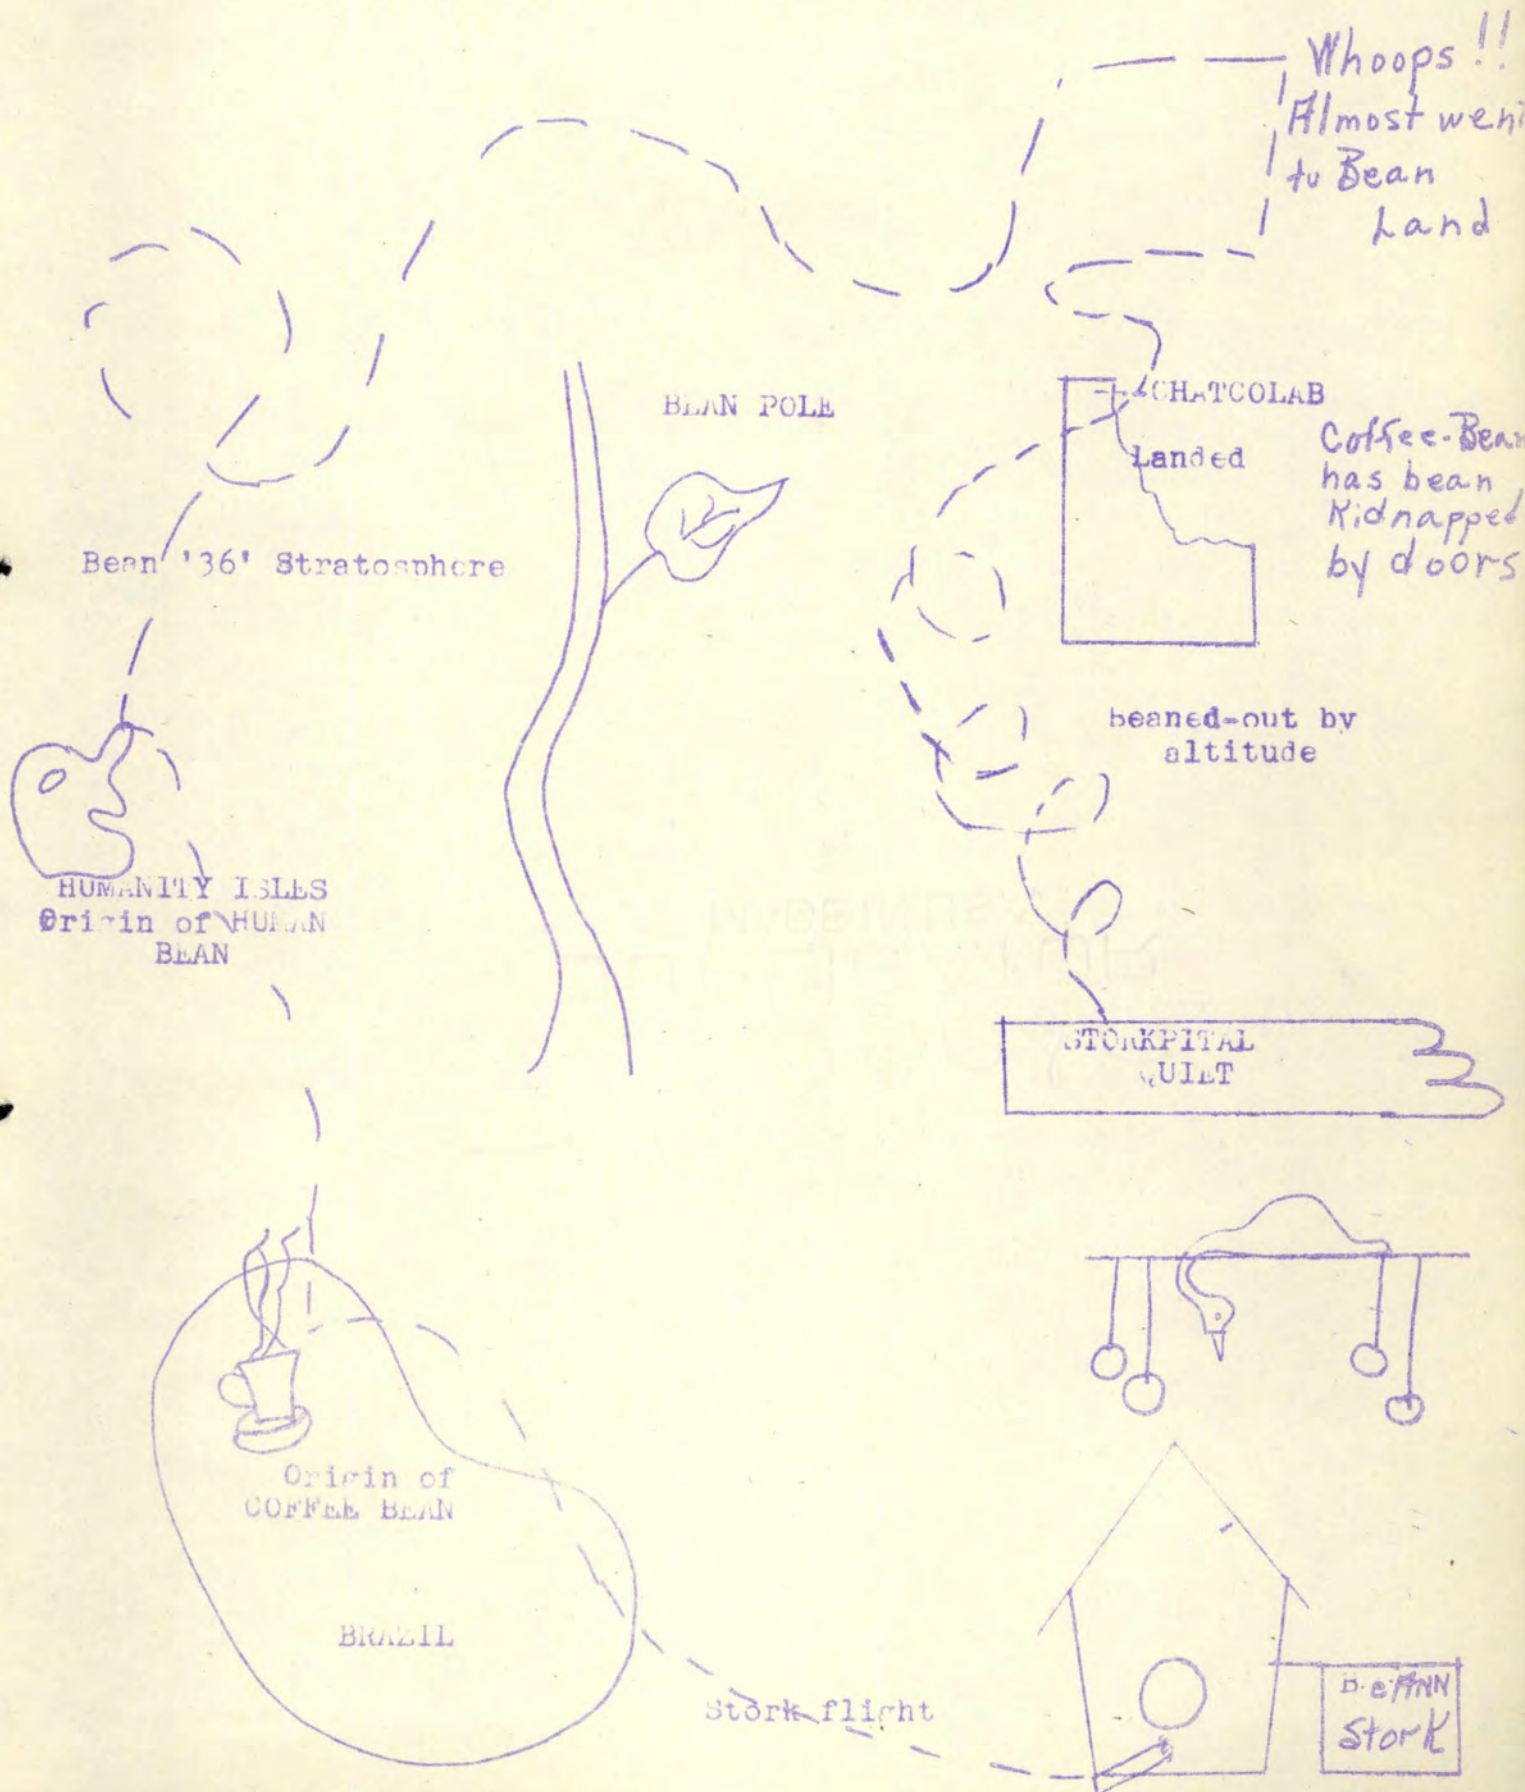 Whoops !!
Almost went
to Bean
Land
BEAN POLE
CHATCOLAB
Landed
Coffee-Bean
has bean
Kidnapped
by doors
Bean '36' Stratosphere
beaned-out by
altitude
HUMANITY ISLES
Origin of HUMAN
BEAN
STORKPITAL
QUIET
Origin of
COFFEE BEAN
BRAZIL
Stork flight
BeANN
Stork